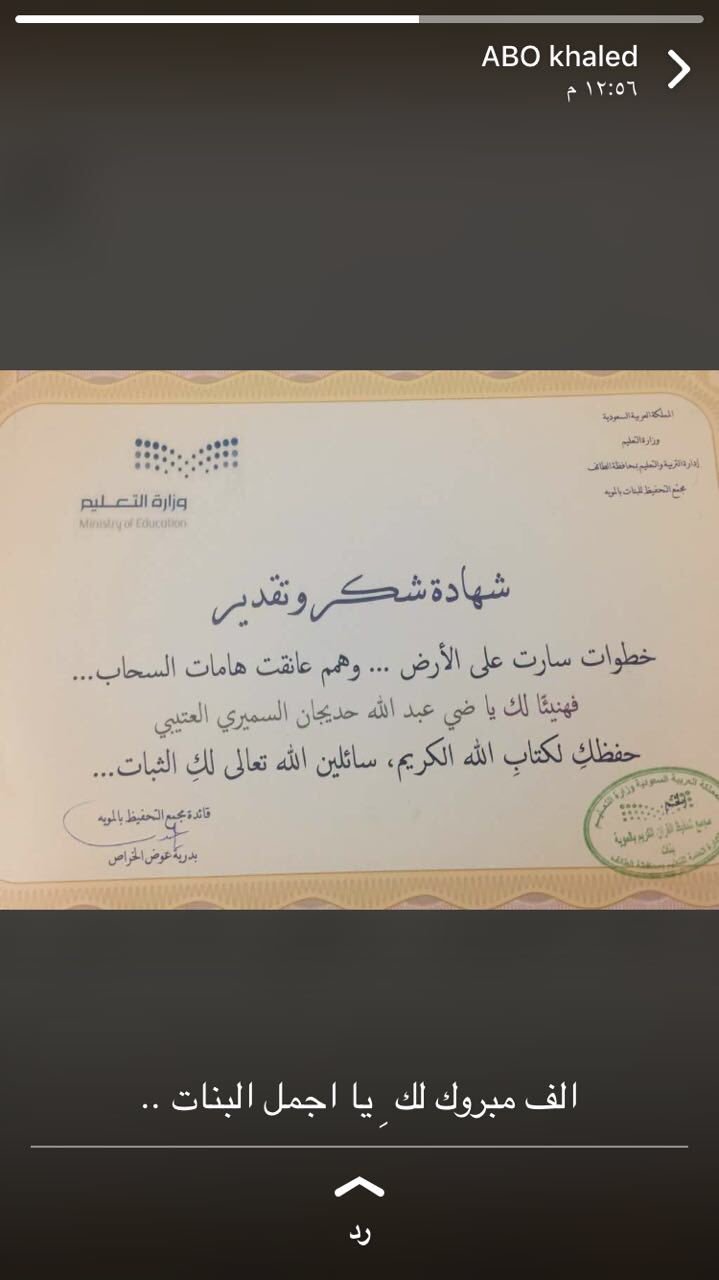 ABO khaled
١٢:٥٦ م
المملكة العربية السعودية
وزارة التعليم
إدارة التربية والتعليم بمحافظة الطائف
مجمع التحفيظ للبنات بالمويه
وزارة التعليم
Ministry of Education
شهادة شكر وتقدير
خطوات سارت على الأرض ... وهمم عانقت هامات السحاب...
فهنيئًا لك يا ضي عبد الله حديجان السميري العتيبي
حفظكِ لكتابِ الله الكريم، سائلين الله تعالى لكِ الثبات...
قائدة مجمع التحفيظ بالمويه
بدرية عوض الخراص
المملكة العربية السعودية وزارة التعليم
مجمع تحفيظ القرآن الكريم بالموية
بنات
الف مبروك لك ِ يا اجمل البنات ..
رد